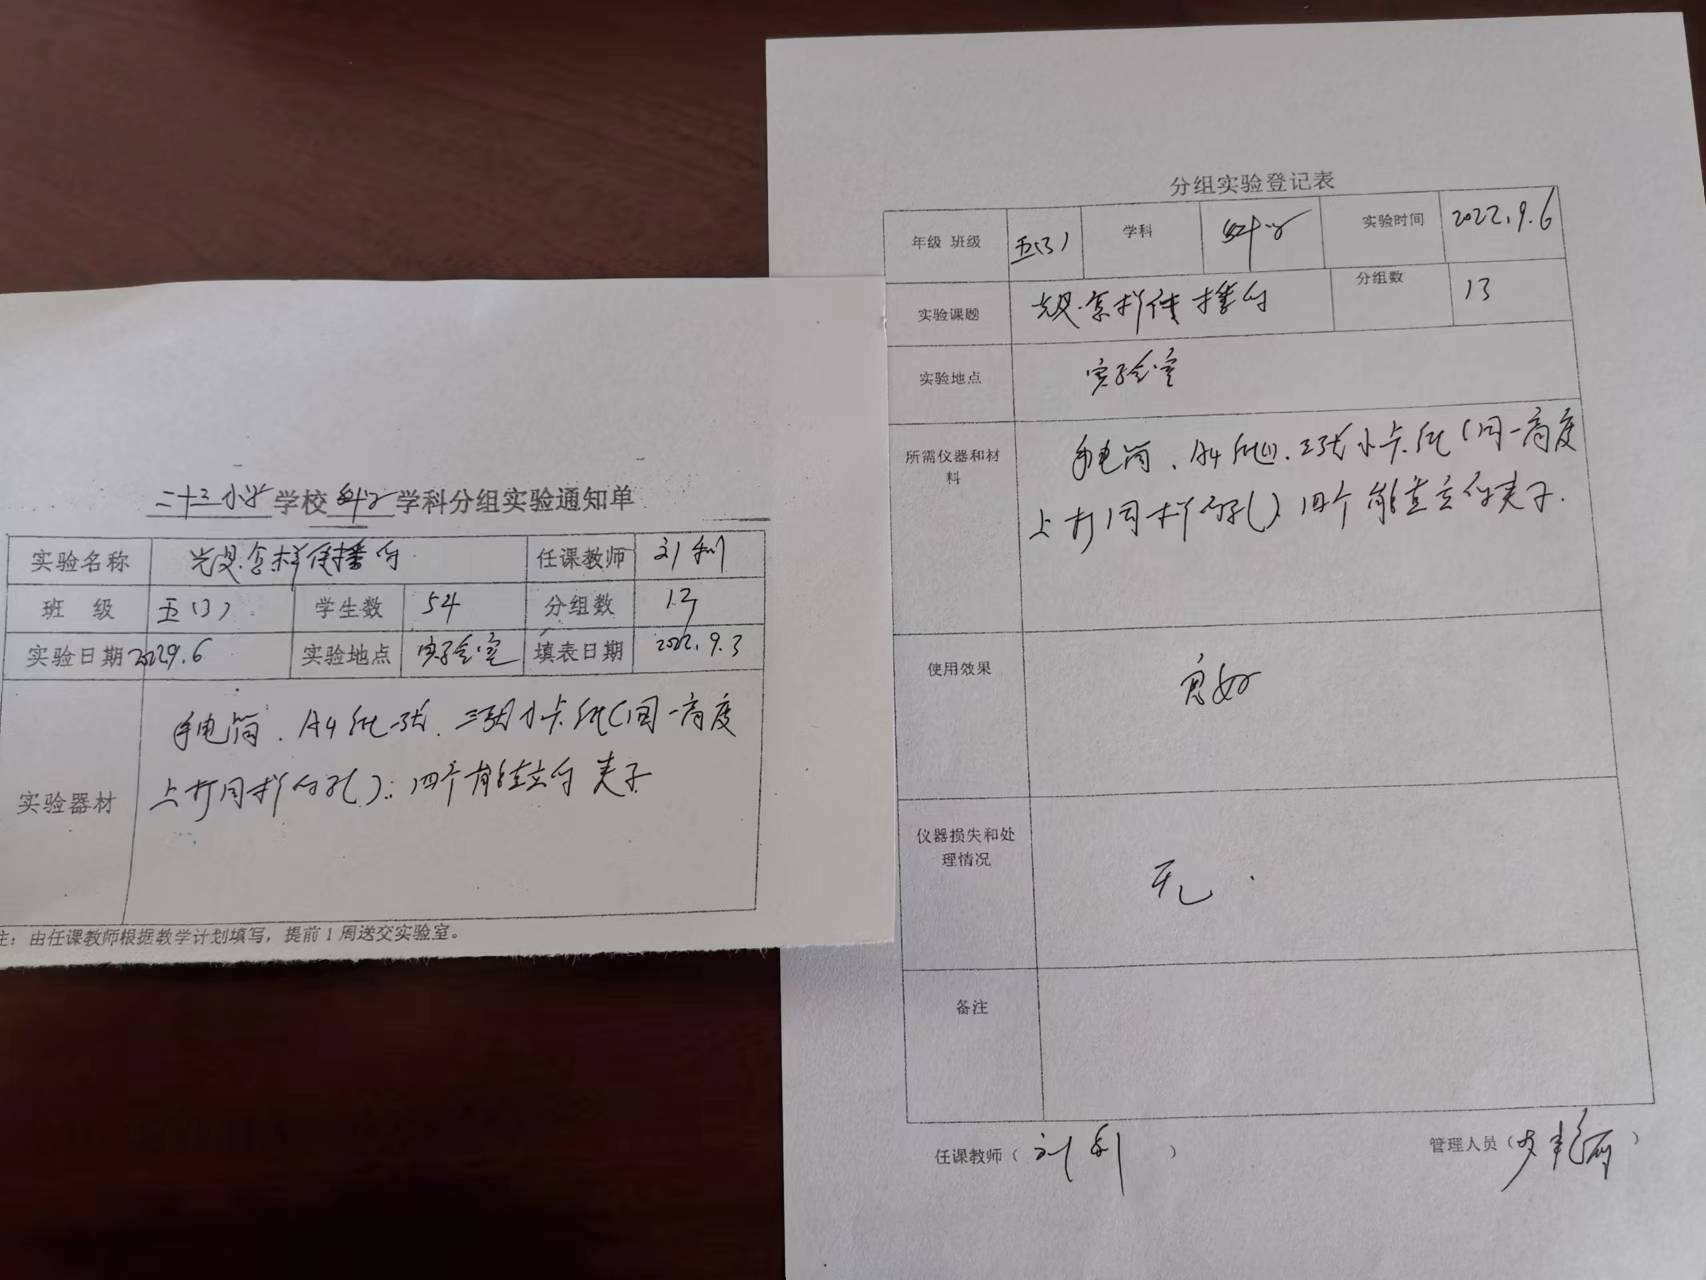 二十三小学学校科学学科分组实验通知单
实验名称 光是怎样传播的 任课教师 刘利
班 级 五(3) 学生数 54 分组数 13
实验日期 2022.9.6 实验地点 实验室 填表日期 2022.9.3
实验器材 手电筒、A4纸一张、三张小卡纸(同一高度
上打同样的孔)、四个能直立的夹子
注：由任课教师根据教学计划填写，提前1周送交实验室。
分组实验登记表
年级 班级 五(3) 学科 科学 实验时间 2022.9.6
实验课题 光是怎样传播的 分组数 13
实验地点 实验室
所需仪器和材
料
手电筒、A4纸、三张小卡纸(同一高度
上打同样的孔)、四个能直立的夹子.
使用效果 良好
仪器损失和处
理情况
无.
备注
任课教师（刘利） 管理人员（ ）